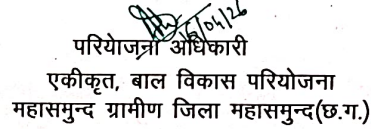 16/04/26
परियोजना अधिकारी
एकीकृत, बाल विकास परियोजना
महासमुन्द ग्रामीण जिला महासमुन्द(छ.ग.)